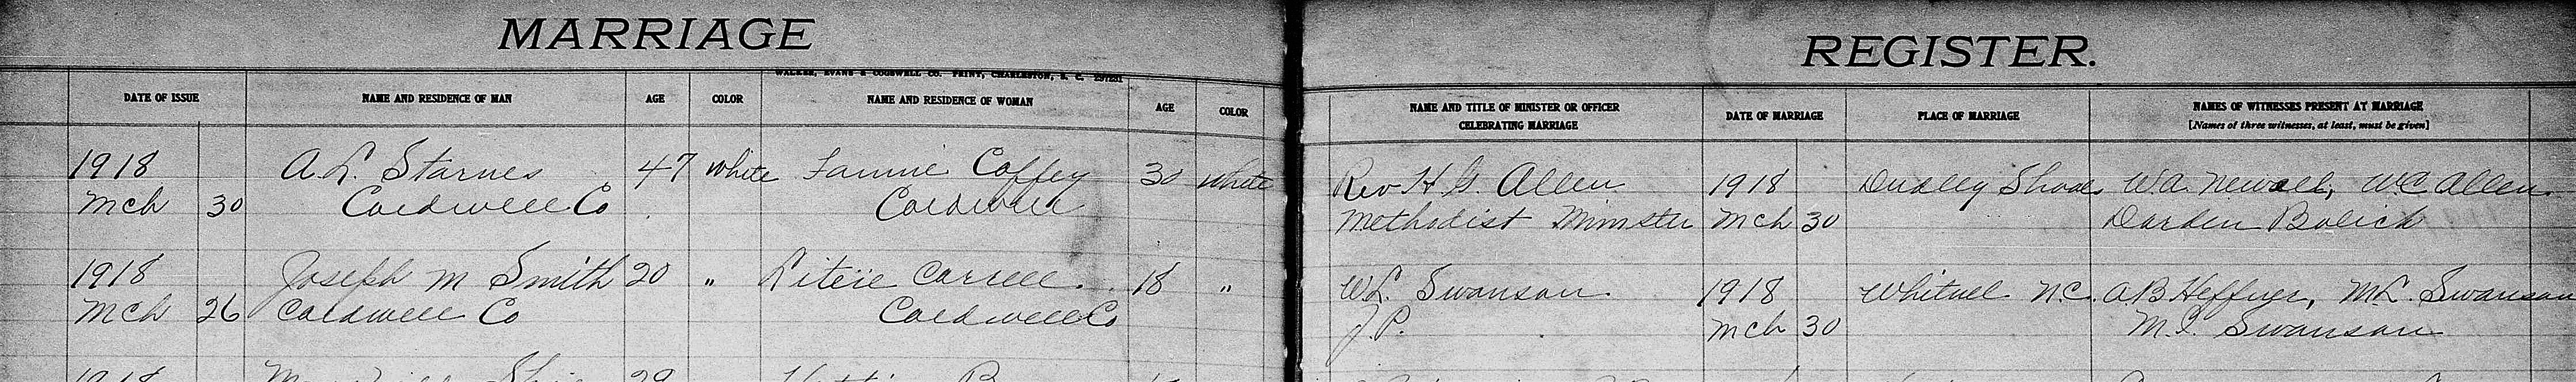 MARRIAGE REGISTER.
WALKER, EVANS & COGSWELL CO. PRINT, CHARLESTON, S. C.
DATE OF ISSUE
NAME AND RESIDENCE OF MAN
AGE
COLOR
NAME AND RESIDENCE OF WOMAN
AGE
COLOR
NAME AND TITLE OF MINISTER OR OFFICER
CELEBRATING MARRIAGE
DATE OF MARRIAGE
PLACE OF MARRIAGE
NAMES OF WITNESSES PRESENT AT MARRIAGE
[Names of three witnesses, at least, must be given]
1918 A. L. Starnes 47 white Fannie Coffey 30 white Rev H G. Allen 1918 Dudley Shoals W A. Newell, W C Allen
Mch 30 Caldwell Co Caldwell Methodist Minister Mch 30 Darden Bolick
1918 Joseph M Smith 20 " Carrell 18 " W L. Swanson 1918 Whitnel N.C. A B Heffner, M L. Swanson
Mch 26 Caldwell Co Caldwell Co J. P. Mch 30 M. I. Swanson
1918 29